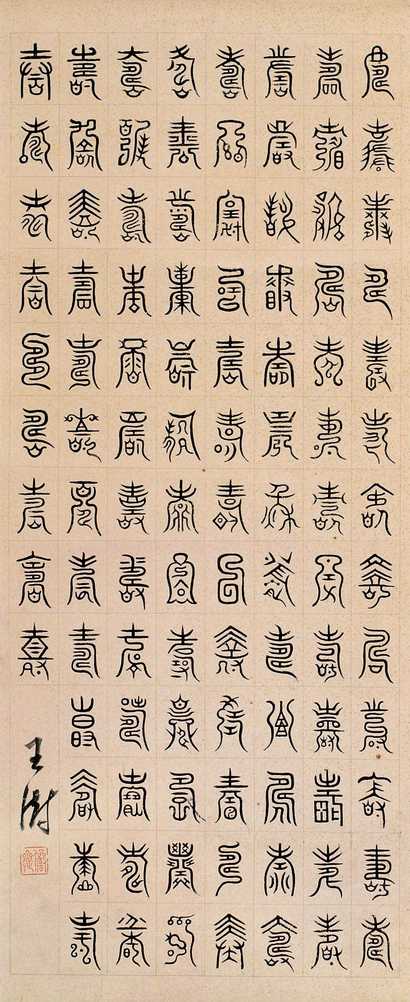 壽壽壽壽壽壽壽壽壽壽壽壽壽
壽壽壽壽壽壽壽壽壽壽壽壽壽
壽壽壽壽壽壽壽壽壽壽壽壽壽
壽壽壽壽壽壽壽壽壽壽壽壽壽
壽壽壽壽壽壽壽壽壽壽壽壽壽
壽壽壽壽壽壽壽壽壽壽壽壽壽
壽壽壽壽壽壽壽壽壽壽壽壽壽
壽壽壽壽壽壽壽壽壽
王澍